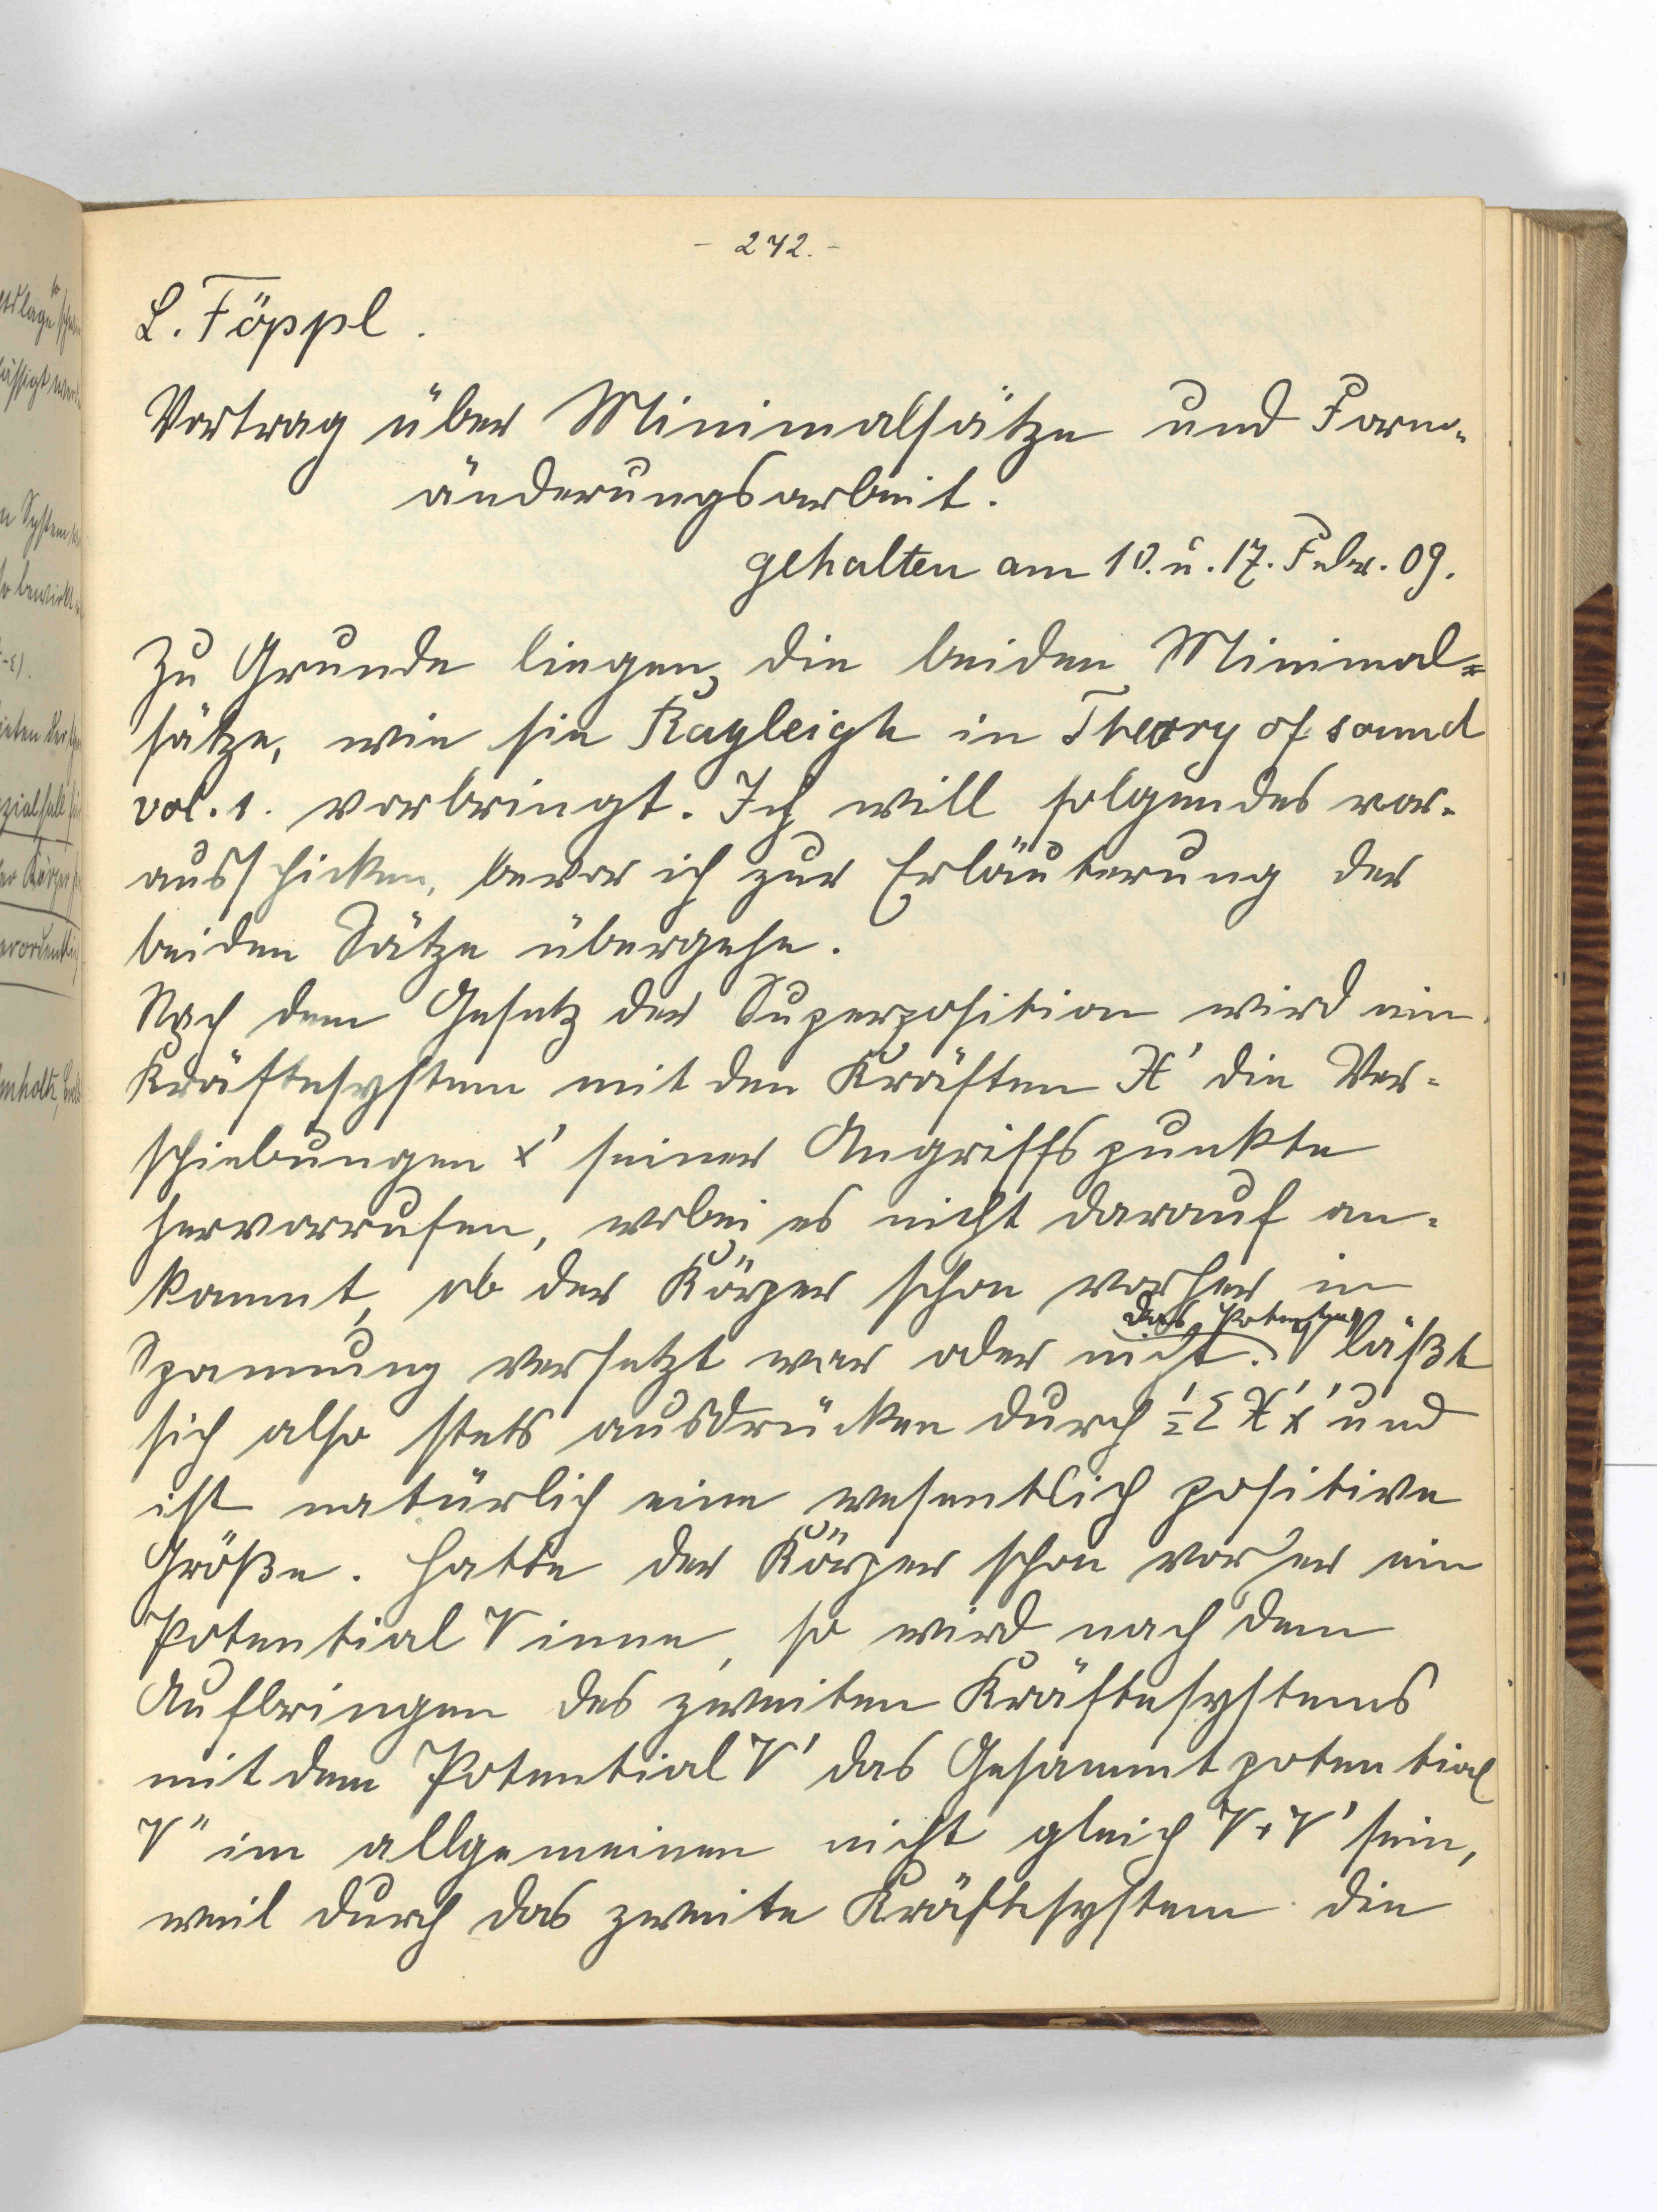 - 242. -
L. Föppl.
Vortrag über Minimalsätze und Form-
änderungsarbeit.
gehalten am 10. u. 17. Febr. 09.
Zu Grunde liegen die beiden Minimal-
sätze, wie sie Rayleigh in Theory of sound
vol. 1. vorbringt. Ich will folgendes vor-
ausschicken, bevor ich zur Erläuterung der
beiden Sätze übergehe.
Nach dem Gesetz der Superposition wird ein
Kräftesystem mit den Kräften X' die Ver-
schiebungen x' seiner Angriffspunkte
hervorrufen, wobei es nicht darauf an-
kommt, ob der Körper schon vorher in
Spannung versetzt war oder nicht. Das Potential läßt
sich also stets ausdrücken durch ½ Σ X' x' und
ist natürlich eine wesentlich positive
Größe. Hatte der Körper schon vorher ein
Potential V inne, so wird nach dem
Aufbringen des zweiten Kräftesystems
mit dem Potential V' das Gesammtpotential
V'' im allgemeinen nicht gleich V + V' sein,
weil durch das zweite Kräftesystem die